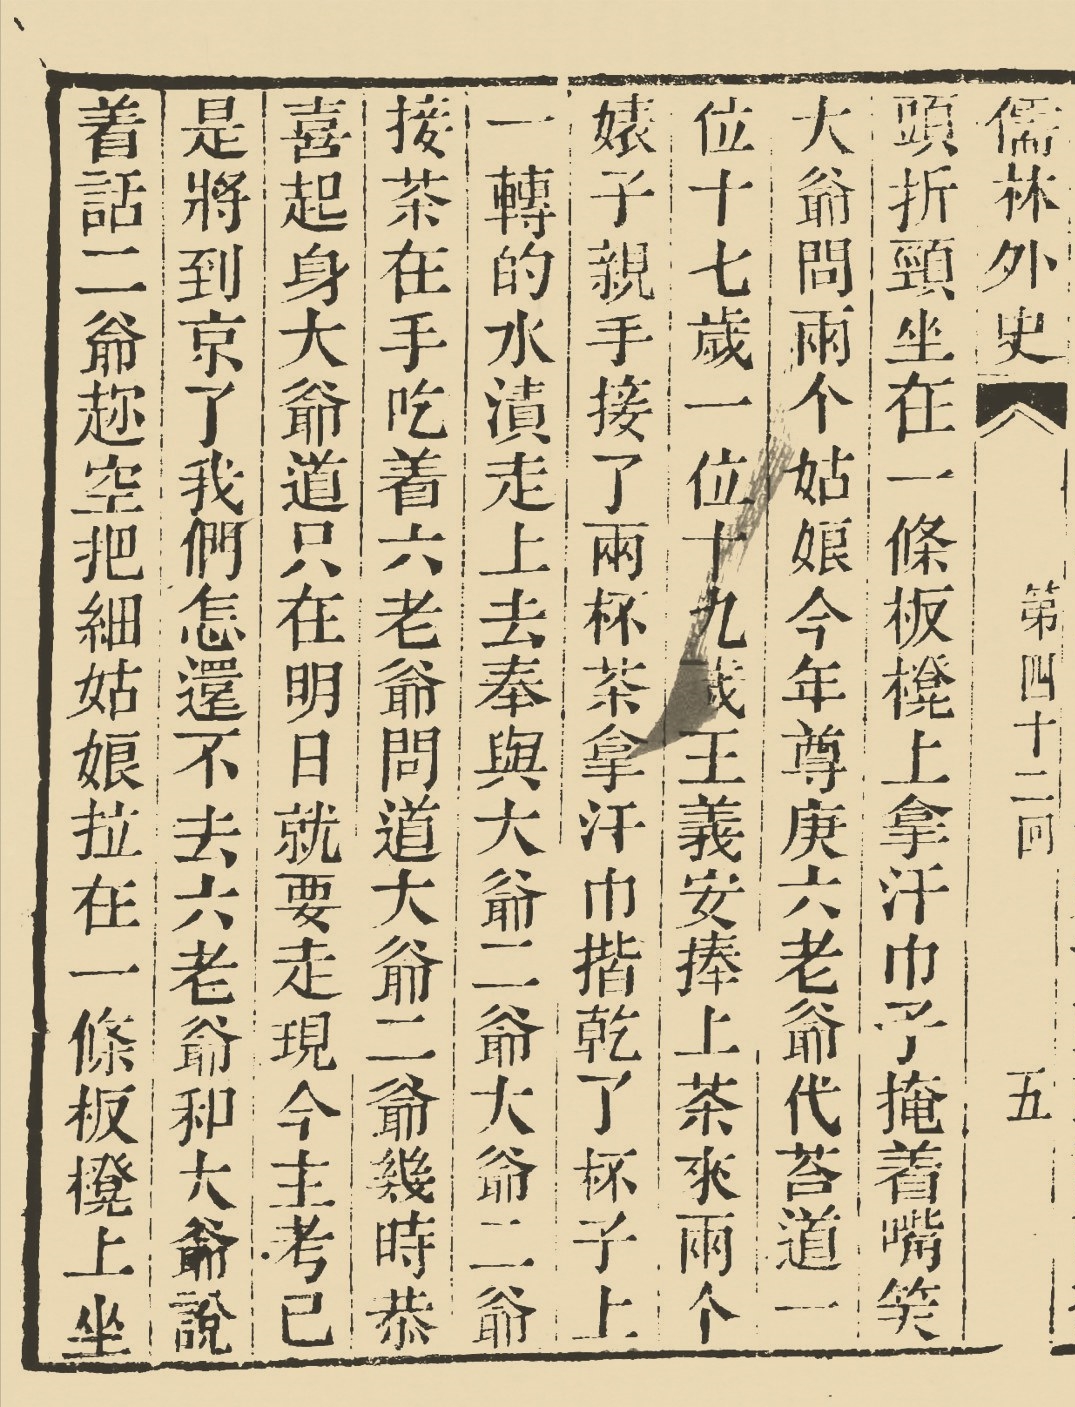 儒林外史 第四十二回 五
頭折頸坐在一條板櫈上拿汗巾子掩着嘴笑
大爺問兩个姑娘今年尊庚六老爺代荅道一
位十七歲一位十九歲王義安捧上茶來兩个
婊子親手接了兩杯茶拿汗巾揩乾了杯子上
一轉的水漬走上去奉與大爺二爺大爺二爺
接茶在手吃着六老爺問道大爺二爺幾時恭
喜起身大爺道只在明日就要走現今主考已
是將到京了我們怎還不去六老爺和大爺說
着話二爺趂空把細姑娘拉在一條板櫈上坐